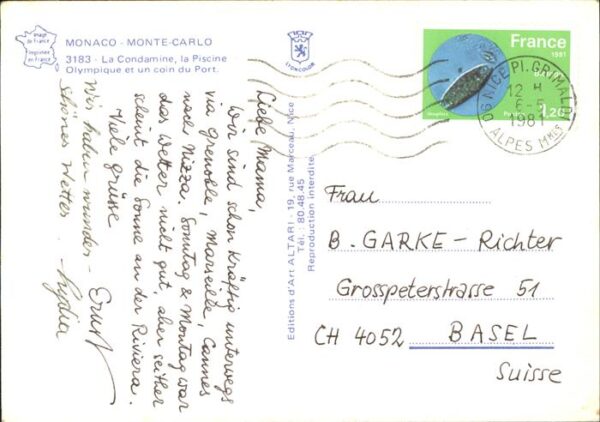 Image
de France
Imprimée
en France
MONACO - MONTE-CARLO
3183 - La Condamine, la Piscine
Olympique et un coin du Port.
LYONCOLOR
France
1981
1,20
06 NICE PL. GRIMALDI
12 H
6-5
1981
ALPES MMES
Editions d'Art ALTARI - 19, rue Marceau, Nice
Tél.: 80.48.45
Reproduction interdite
Liebe Mama,
Wir sind schon kräftig unterwegs
via Grenoble, Marseille, Cannes
nach Nizza. Sonntag & Montag war
das Wetter nicht gut, aber seither
scheint die Sonne an der Riviera.
Viele Grüsse
Ernst
Wir haben wunder-
schönes Wetter. Lydia
Frau
B. GARKE - Richter
Grosspeterstrasse 51
CH 4052 BASEL
Suisse